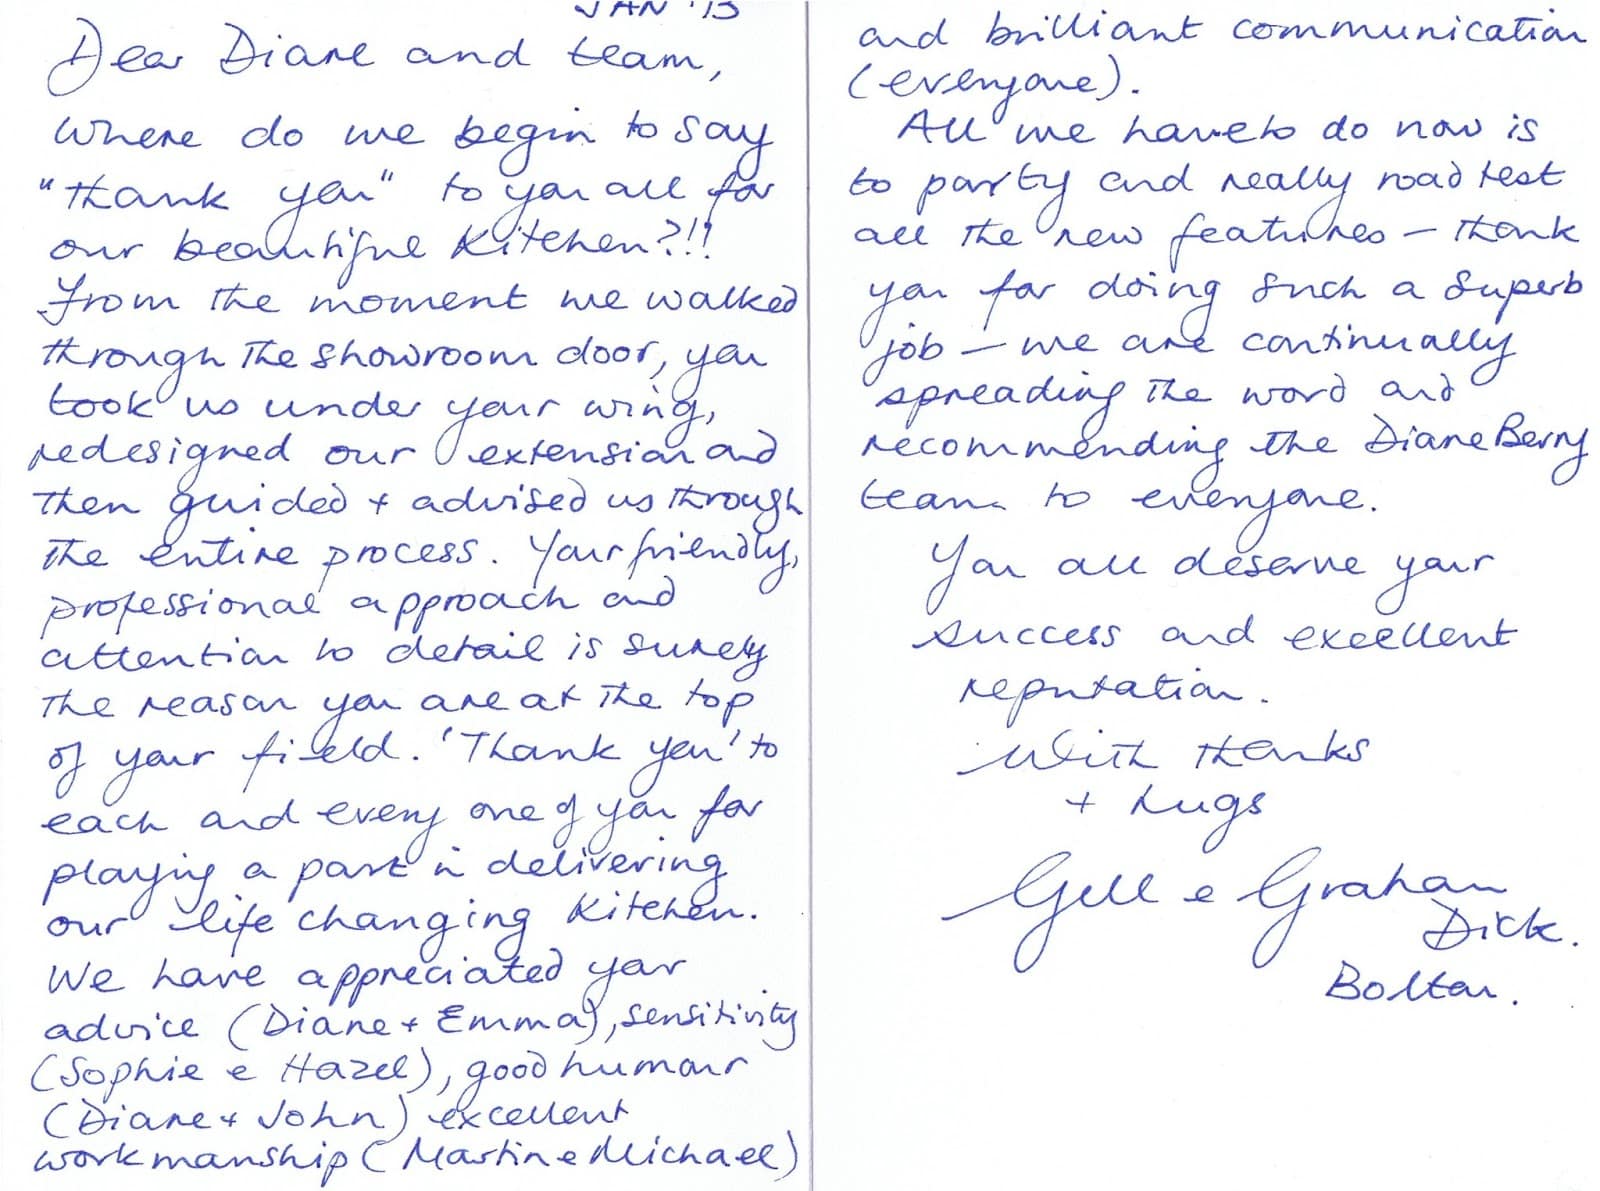 JAN '13
Dear Diane and team,
Where do we begin to say
"thank you" to you all for
our beautiful kitchen?!!?
From the moment we walked
through the showroom door, you
took us under your wing,
redesigned our extension and
then guided + advised us through
the entire process. Your friendly,
professional approach and
attention to detail is surely
the reason you are at the top
of your field. 'Thank you' to
each and every one of you for
playing a part in delivering
our life changing kitchen.
We have appreciated your
advice (Diane + Emma), sensitivity
(Sophie e Hazel), good humour
(Diane + John) excellent
workmanship (Martin e Michael)
and brilliant communication
(everyone).
All we have to do now is
to party and really road test
all the new features – thank
you for doing such a superb
job – we are continually
spreading the word and
recommending the Diane Berry
team to everyone.
You all deserve your
success and excellent
reputation.
With thanks
+ hugs
Gill e Graham
Dick.
Bolton.